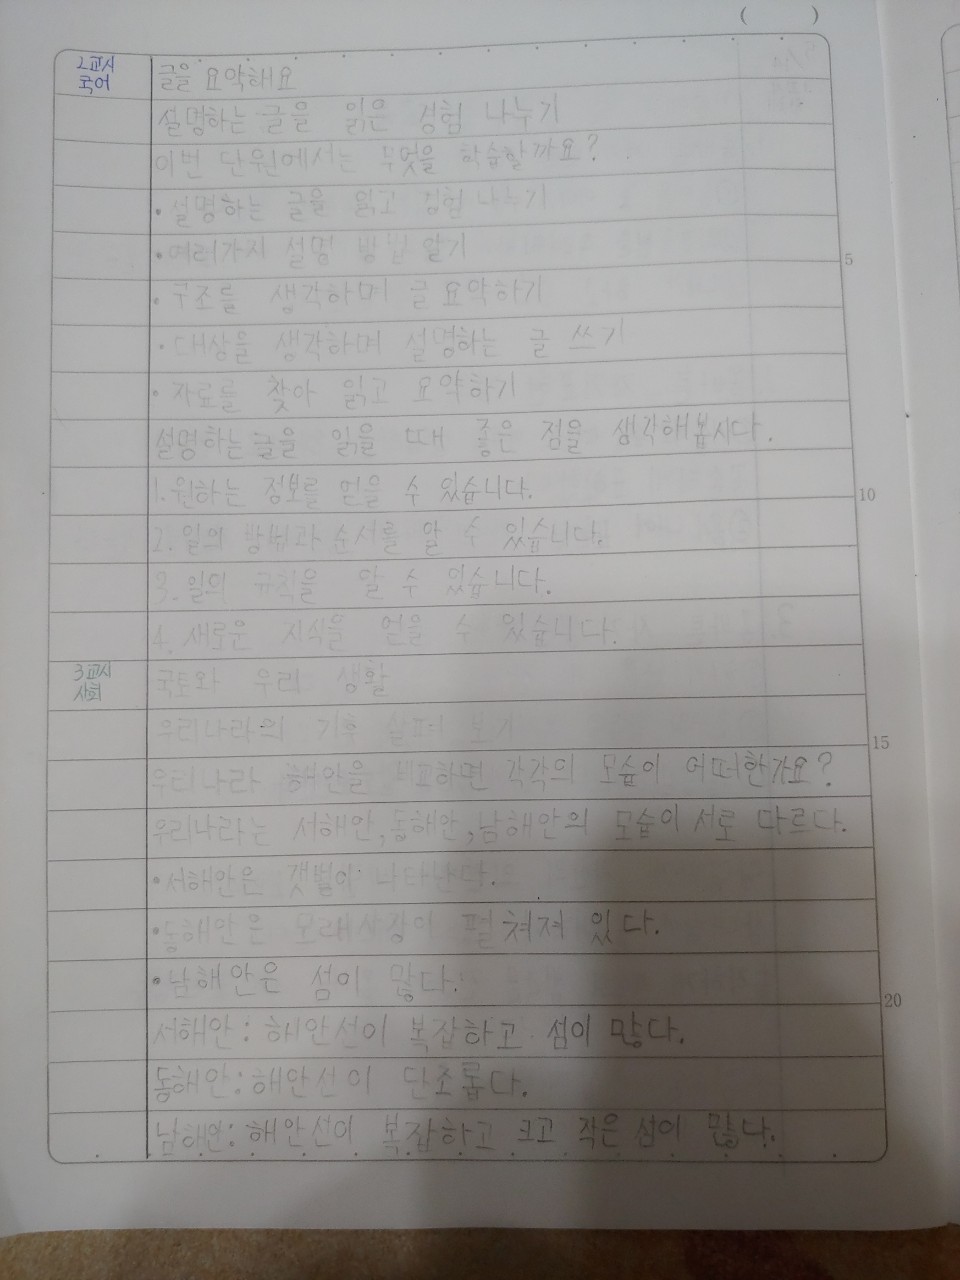 (      )
2교시 글을 요약해요
국어
설명하는 글을 읽은 경험 나누기
이번 단원에서는 무엇을 학습할까요?
• 설명하는 글을 읽고 경험 나누기
• 여러가지 설명 방법 알기
5
• 구조를 생각하며 글 요약하기
• 대상을 생각하며 설명하는 글 쓰기
• 자료를 찾아 읽고 요약하기
설명하는 글을 읽을 때 좋은 점을 생각해봅시다.
1. 원하는 정보를 얻을 수 있습니다.
10
2. 일의 방법과 순서를 알 수 있습니다.
3. 일의 규칙을 알 수 있습니다.
4. 새로운 지식을 얻을 수 있습니다.
3교시 국토와 우리 생활
사회
우리나라의 기후 살펴 보기
15
우리나라 해안을 비교하면 각각의 모습이 어떠한가요?
우리나라는 서해안, 동해안, 남해안의 모습이 서로 다르다.
• 서해안은 갯벌이 나타난다.
• 동해안은 모래사장이 펼쳐져 있다.
• 남해안은 섬이 많다.
20
서해안: 해안선이 복잡하고 섬이 많다.
동해안: 해안선이 단조롭다.
남해안: 해안선이 복잡하고 크고 작은 섬이 많다.